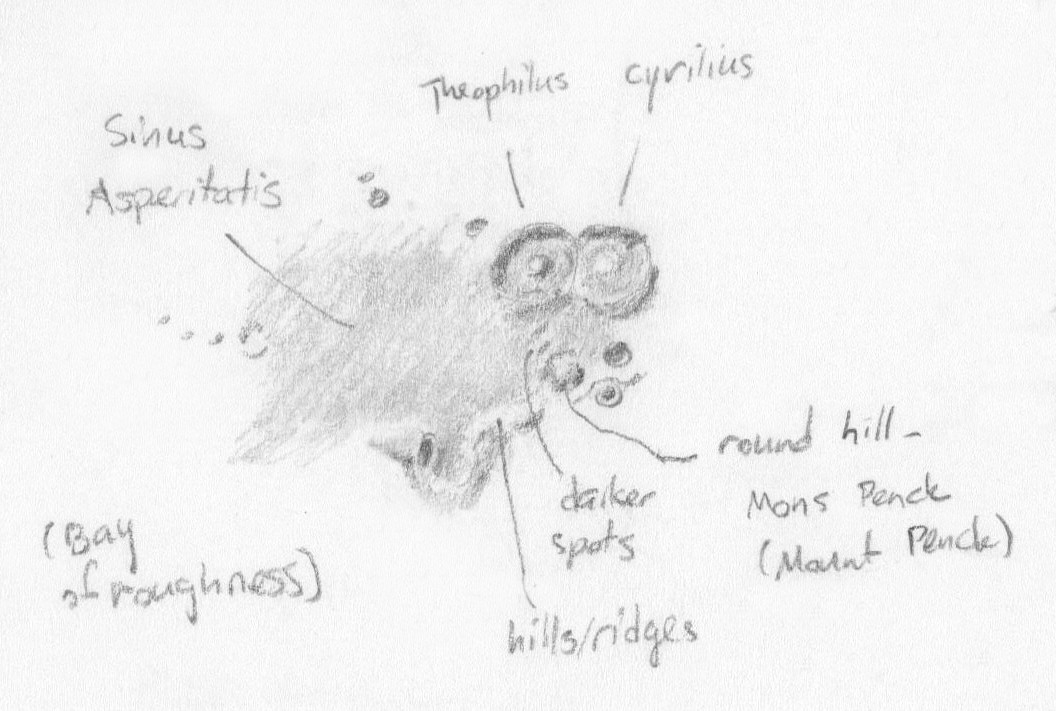 Theophilus
Cyrilius
Sinus
Asperitatis
round hill -
Mons Penck
(Mount Penck)
darker
spots
(Bay
of roughness)
hills/ridges